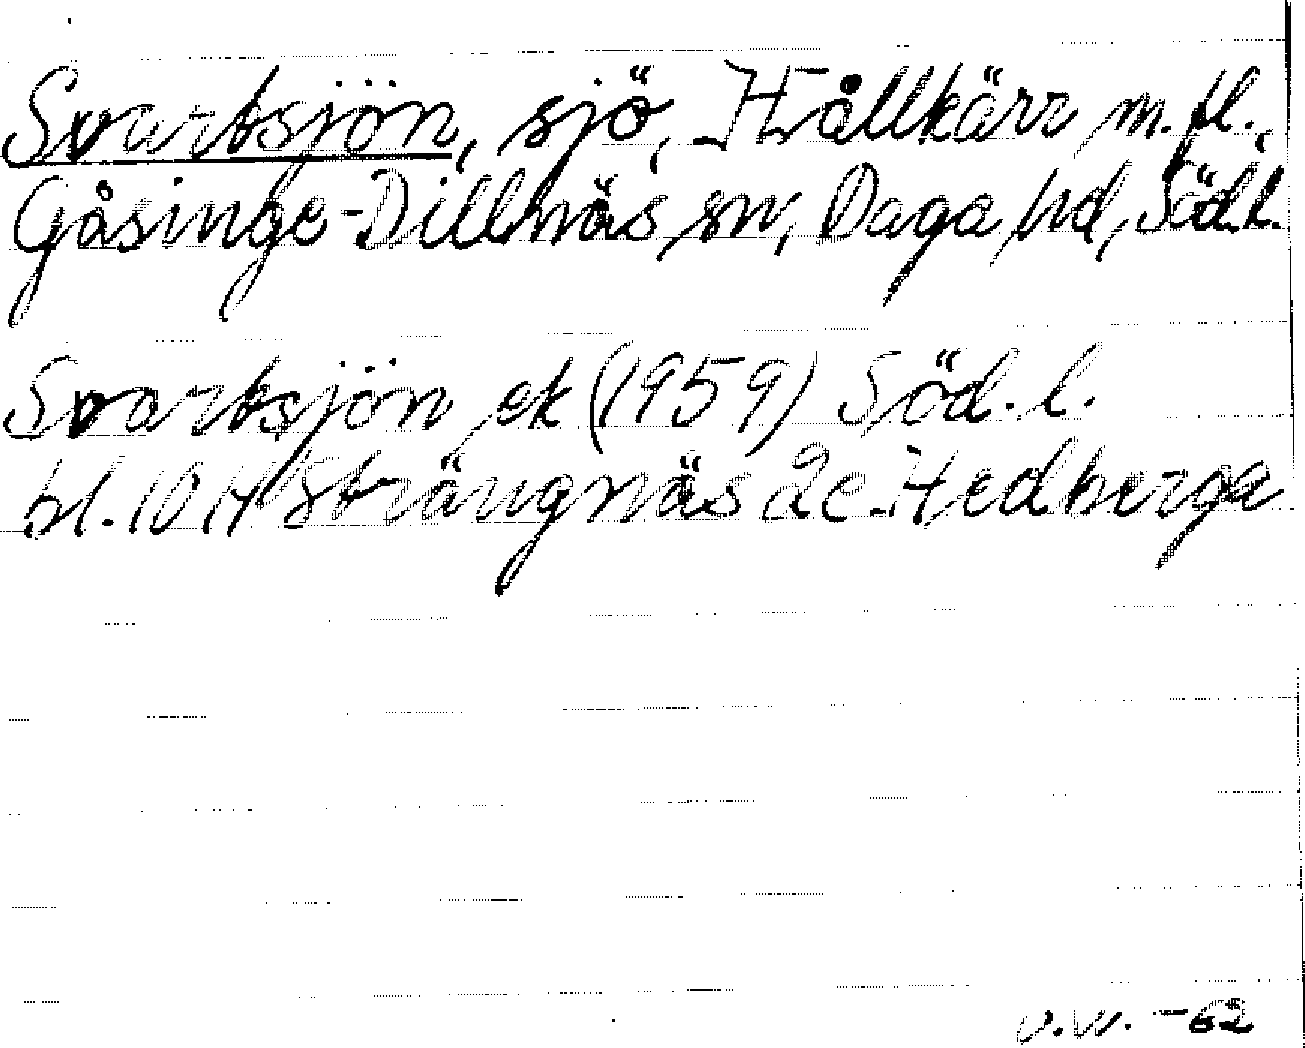 Svartsjön, sjö, Hållkärr m.fl.,
Gåsinge-Dillnäs sn, Daga hd, Södl.
Svartsjön ek (1959) Söd.l.
bl. 10 H Strängnäs 2c Hedberga
v.W. -62